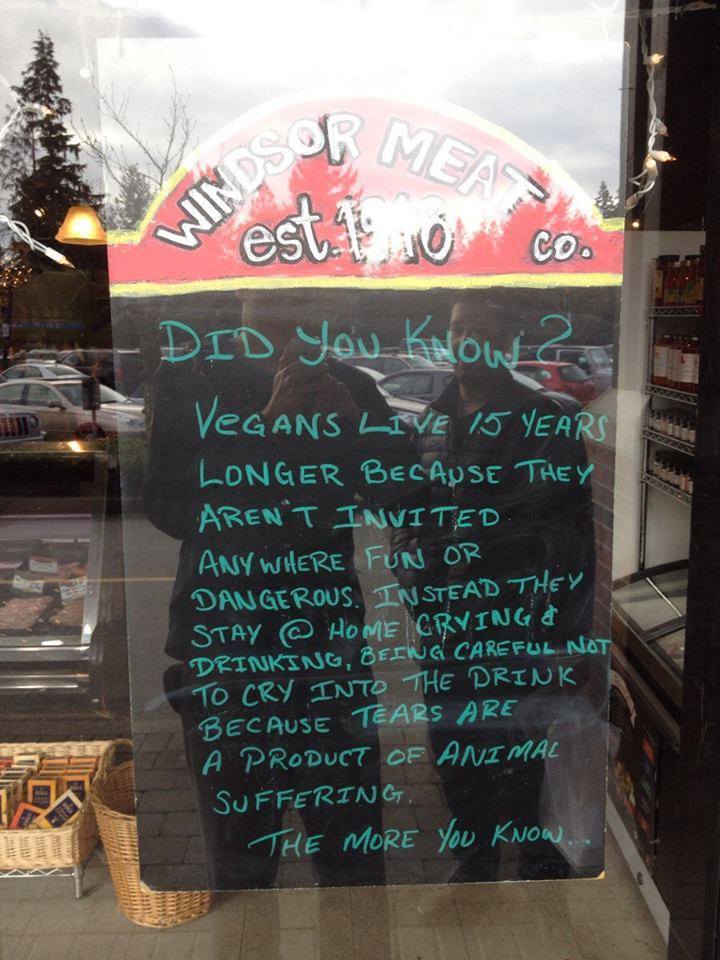 WINDSOR MEAT CO.
est. 1918
DID YOU KNOW?
VEGANS LIVE 15 YEARS
LONGER BECAUSE THEY
AREN'T INVITED
ANYWHERE FUN OR
DANGEROUS. INSTEAD THEY
STAY @ HOME CRYING &
DRINKING, BEING CAREFUL NOT
TO CRY INTO THE DRINK
BECAUSE TEARS ARE
A PRODUCT OF ANIMAL
SUFFERING.
THE MORE YOU KNOW...